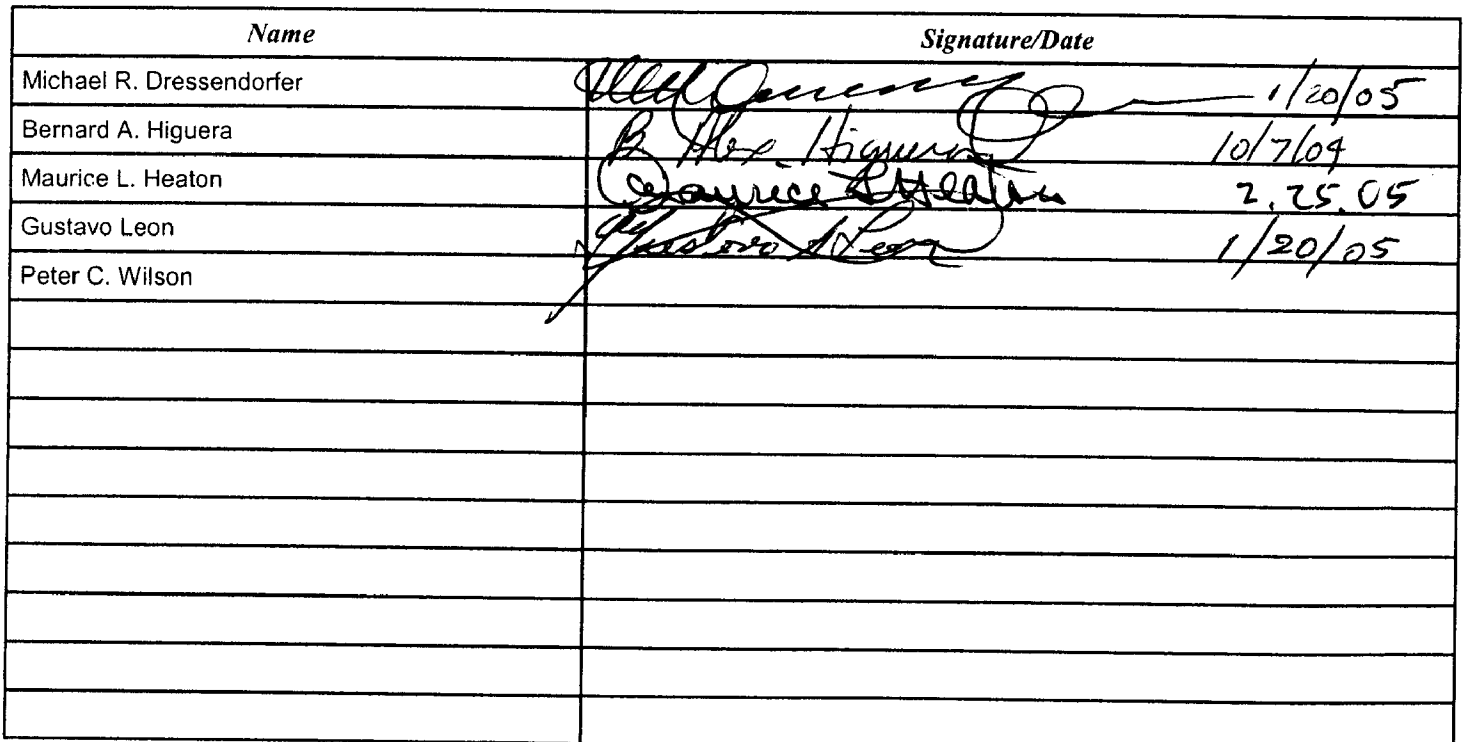 Name Signature/Date
Michael R. Dressendorfer 1/20/05
Bernard A. Higuera B. Alex Higuera 10/7/04
Maurice L. Heaton Maurice L Heaton 2.25.05
Gustavo Leon Gustavo A Leon 1/20/05
Peter C. Wilson